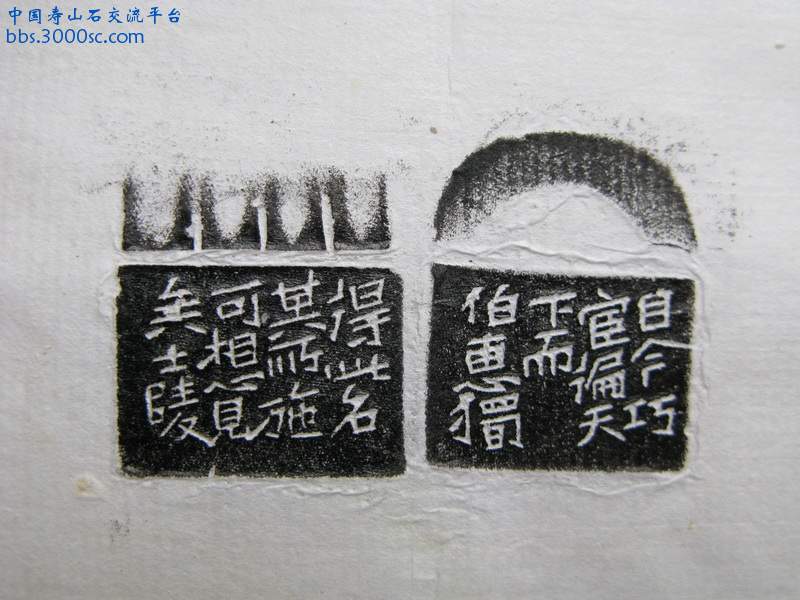 中国寿山石交流平台
bbs.3000sc.com
自今巧
宦徧天
下而
伯惠獨
得此名
其所施
可想見
矣士陵